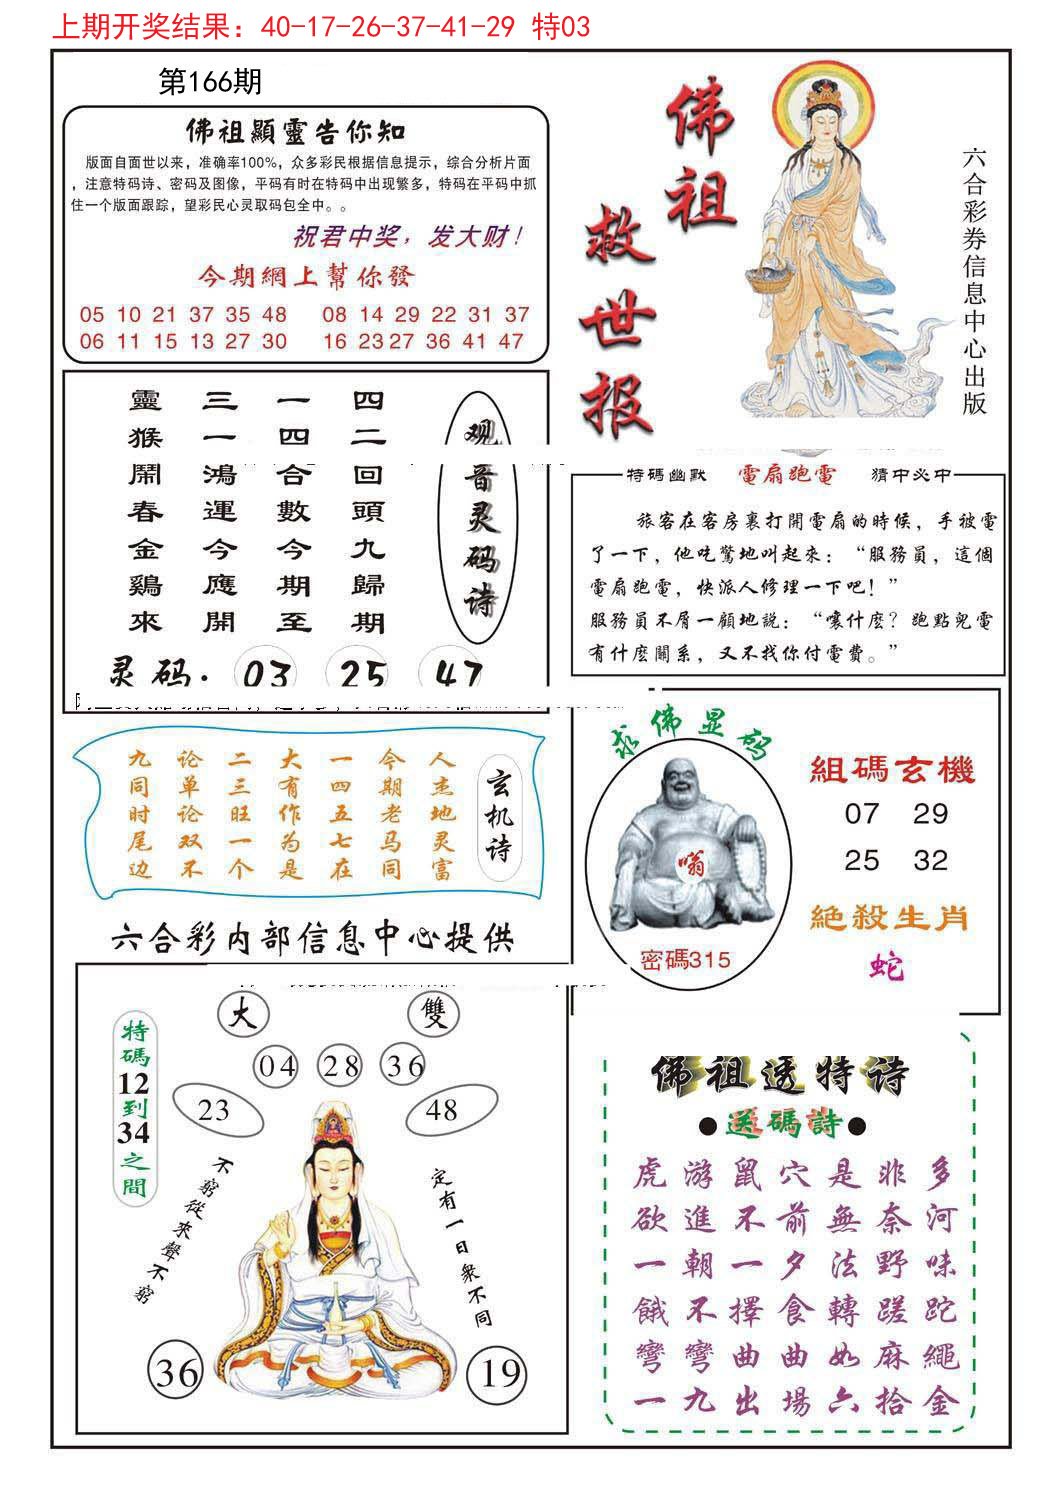 上期开奖结果：40-17-26-37-41-29 特03
第166期
佛祖顯靈告你知
版面自面世以来，准确率100%，众多彩民根据信息提示，综合分析片面
，注意特码诗、密码及图像，平码有时在特码中出现繁多，特码在平码中抓
住一个版面跟踪，望彩民心灵取码包全中。。
祝君中奖，发大财！
今期網上幫你發
05 10 21 37 35 48 08 14 29 22 31 37
06 11 15 13 27 30 16 23 27 36 41 47
佛祖
救世报
六合彩券信息中心出版
靈猴鬧春金鷄來
三一鴻運今應開
一四合數今期至
四二回頭九歸期
观音灵码诗
灵码. 03 25 47
特碼幽默 電扇跑電 猜中必中
旅客在客房裏打開電扇的時候，手被電
了一下，他吃驚地叫起來：“服務員，這個
電扇跑電，快派人修理一下吧！”
服務員不屑一顧地説：“嚷什麽？跑點兒電
有什麽關系，又不找你付電費。”
九同时尾边
论单论双不
二三旺一个
大有作为是
一四五七在
今期老马同
人杰地灵富
玄机诗
六合彩内部信息中心提供
求佛显码
嗡
密碼315
組碼玄機
07 29
25 32
絶殺生肖
蛇
大 雙
04 28 36
23 48
特碼12到34之間
不窮從來聲不窮
定有一日衆不同
36 19
佛祖透特诗
●送碼詩●
虎游鼠穴是非多
欲進不前無奈河
一朝一夕法野味
餓不擇食轉蹉跎
彎彎曲曲如麻繩
一九出場六拾金